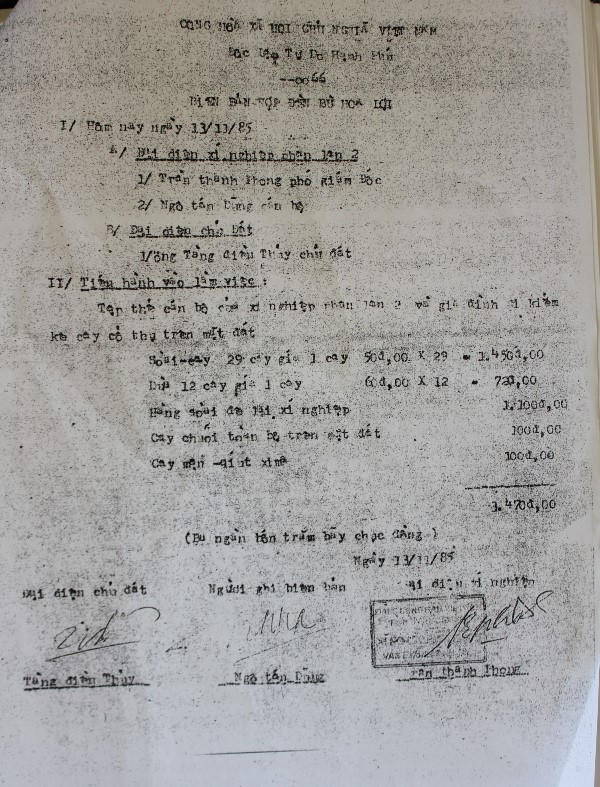 CỘNG HÒA XÃ HỘI CHỦ NGHĨA VIỆT NAM
Độc Lập Tự Do Hạnh Phúc
--oo66
BIÊN BẢN HỌP ĐỀN BÙ HOA LỢI
I/ Hôm nay ngày 13/11/85
A/ Đại diện xí nghiệp phân lân 2
1/ Trần thành Phong phó giám Đốc
2/ Ngô tấn Dũng cán bộ
B/ Đại diện chủ Đất
1/ông Tăng diệu Thủy chủ đất
II/ Tiến hành vào làm việc :
Tập thể cán bộ của xí nghiệp phân lân 2 và gia đình đi kiểm
kê cây cỏ thụ trên mặt đất
Soài-cây 29 cây giá 1 cây 50đ,00 X 29 = 1.450đ,00
Dừa 12 cây giá 1 cây 60đ,00 X 12 = 720,00
Hàng soài để lại xí nghiệp 1.100đ,00
Cây chuối toàn bộ trên mặt đất 100đ,00
Cây mận 100đ,00
3.470đ,00
(Ba ngàn bốn trăm bảy chục đồng )
Ngày 13/11/85
Đại diện chủ đất Người ghi biên bản Đại diện xí nghiệp
Tăng diệu Thủy Ngô tấn Dũng Trần thành Phong